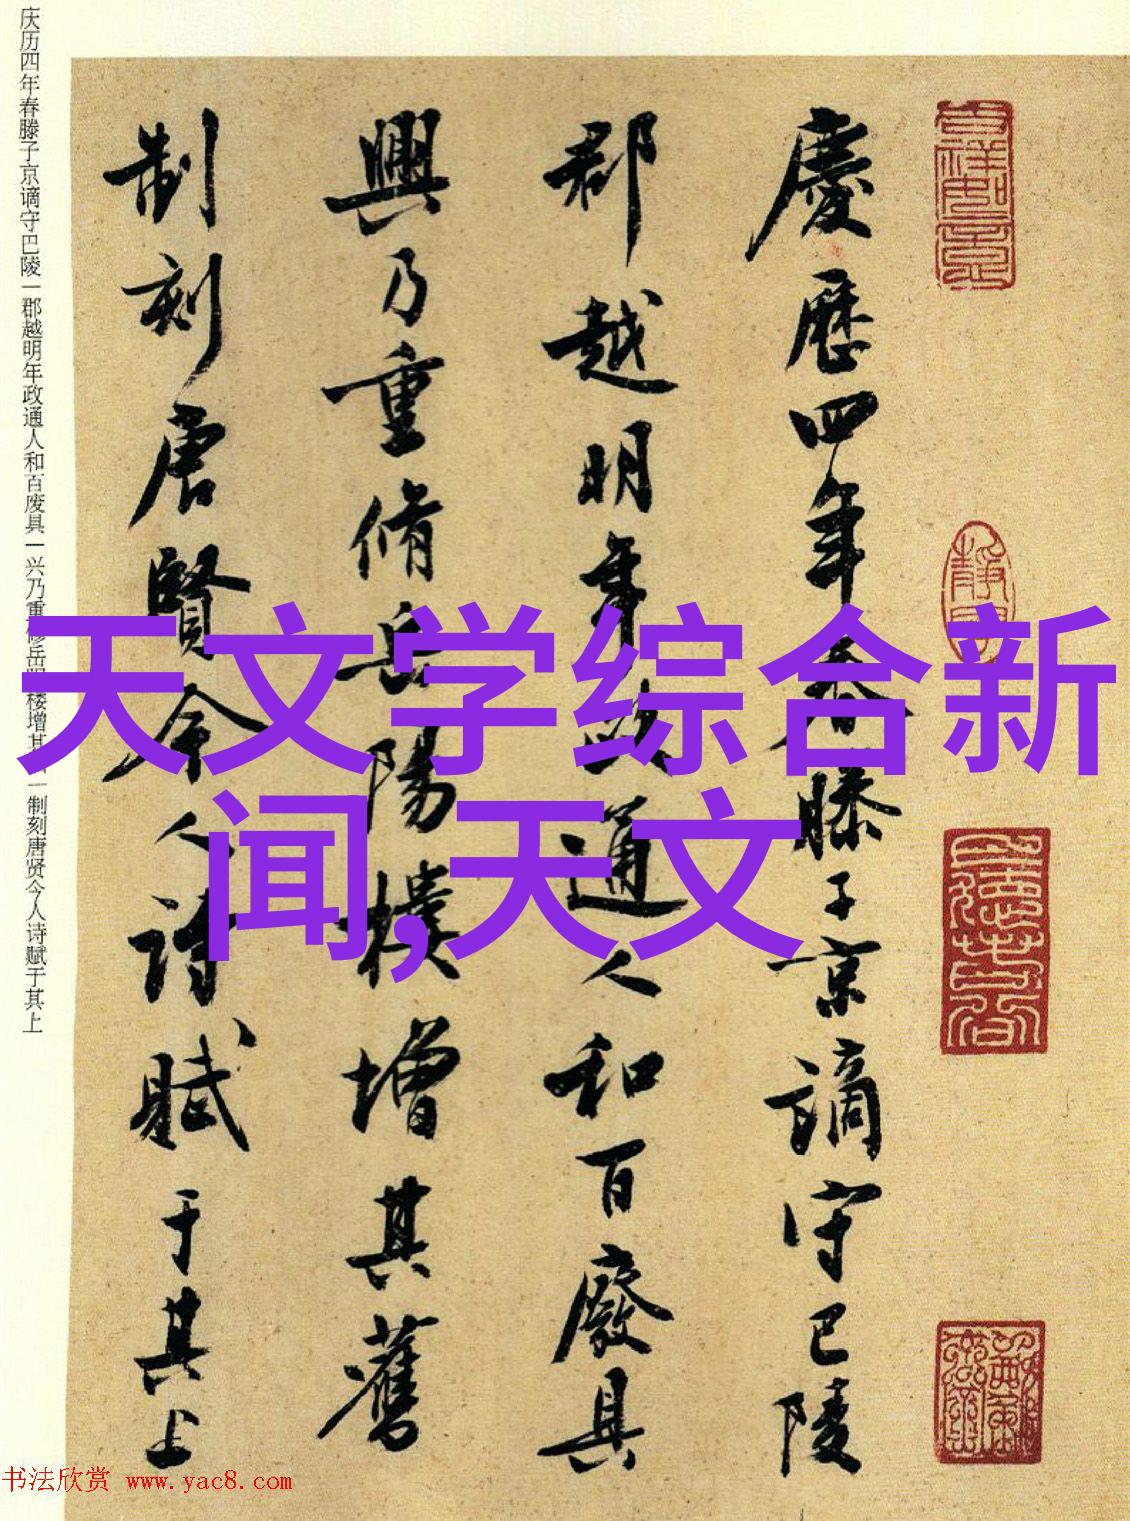 慶歷四年春滕子京謫守巴陵
郡越明年政通人和百廢具
興乃重脩岳陽樓增其舊
制刻唐賢今人詩賦于其上
庆历四年春滕子京谪守巴陵一郡越明年政通人和百废具一兴乃重修岳阳楼增其旧一制刻唐贤今人诗赋于其上
天文学综合新
闻,天文
书法欣赏 www.yac8.com